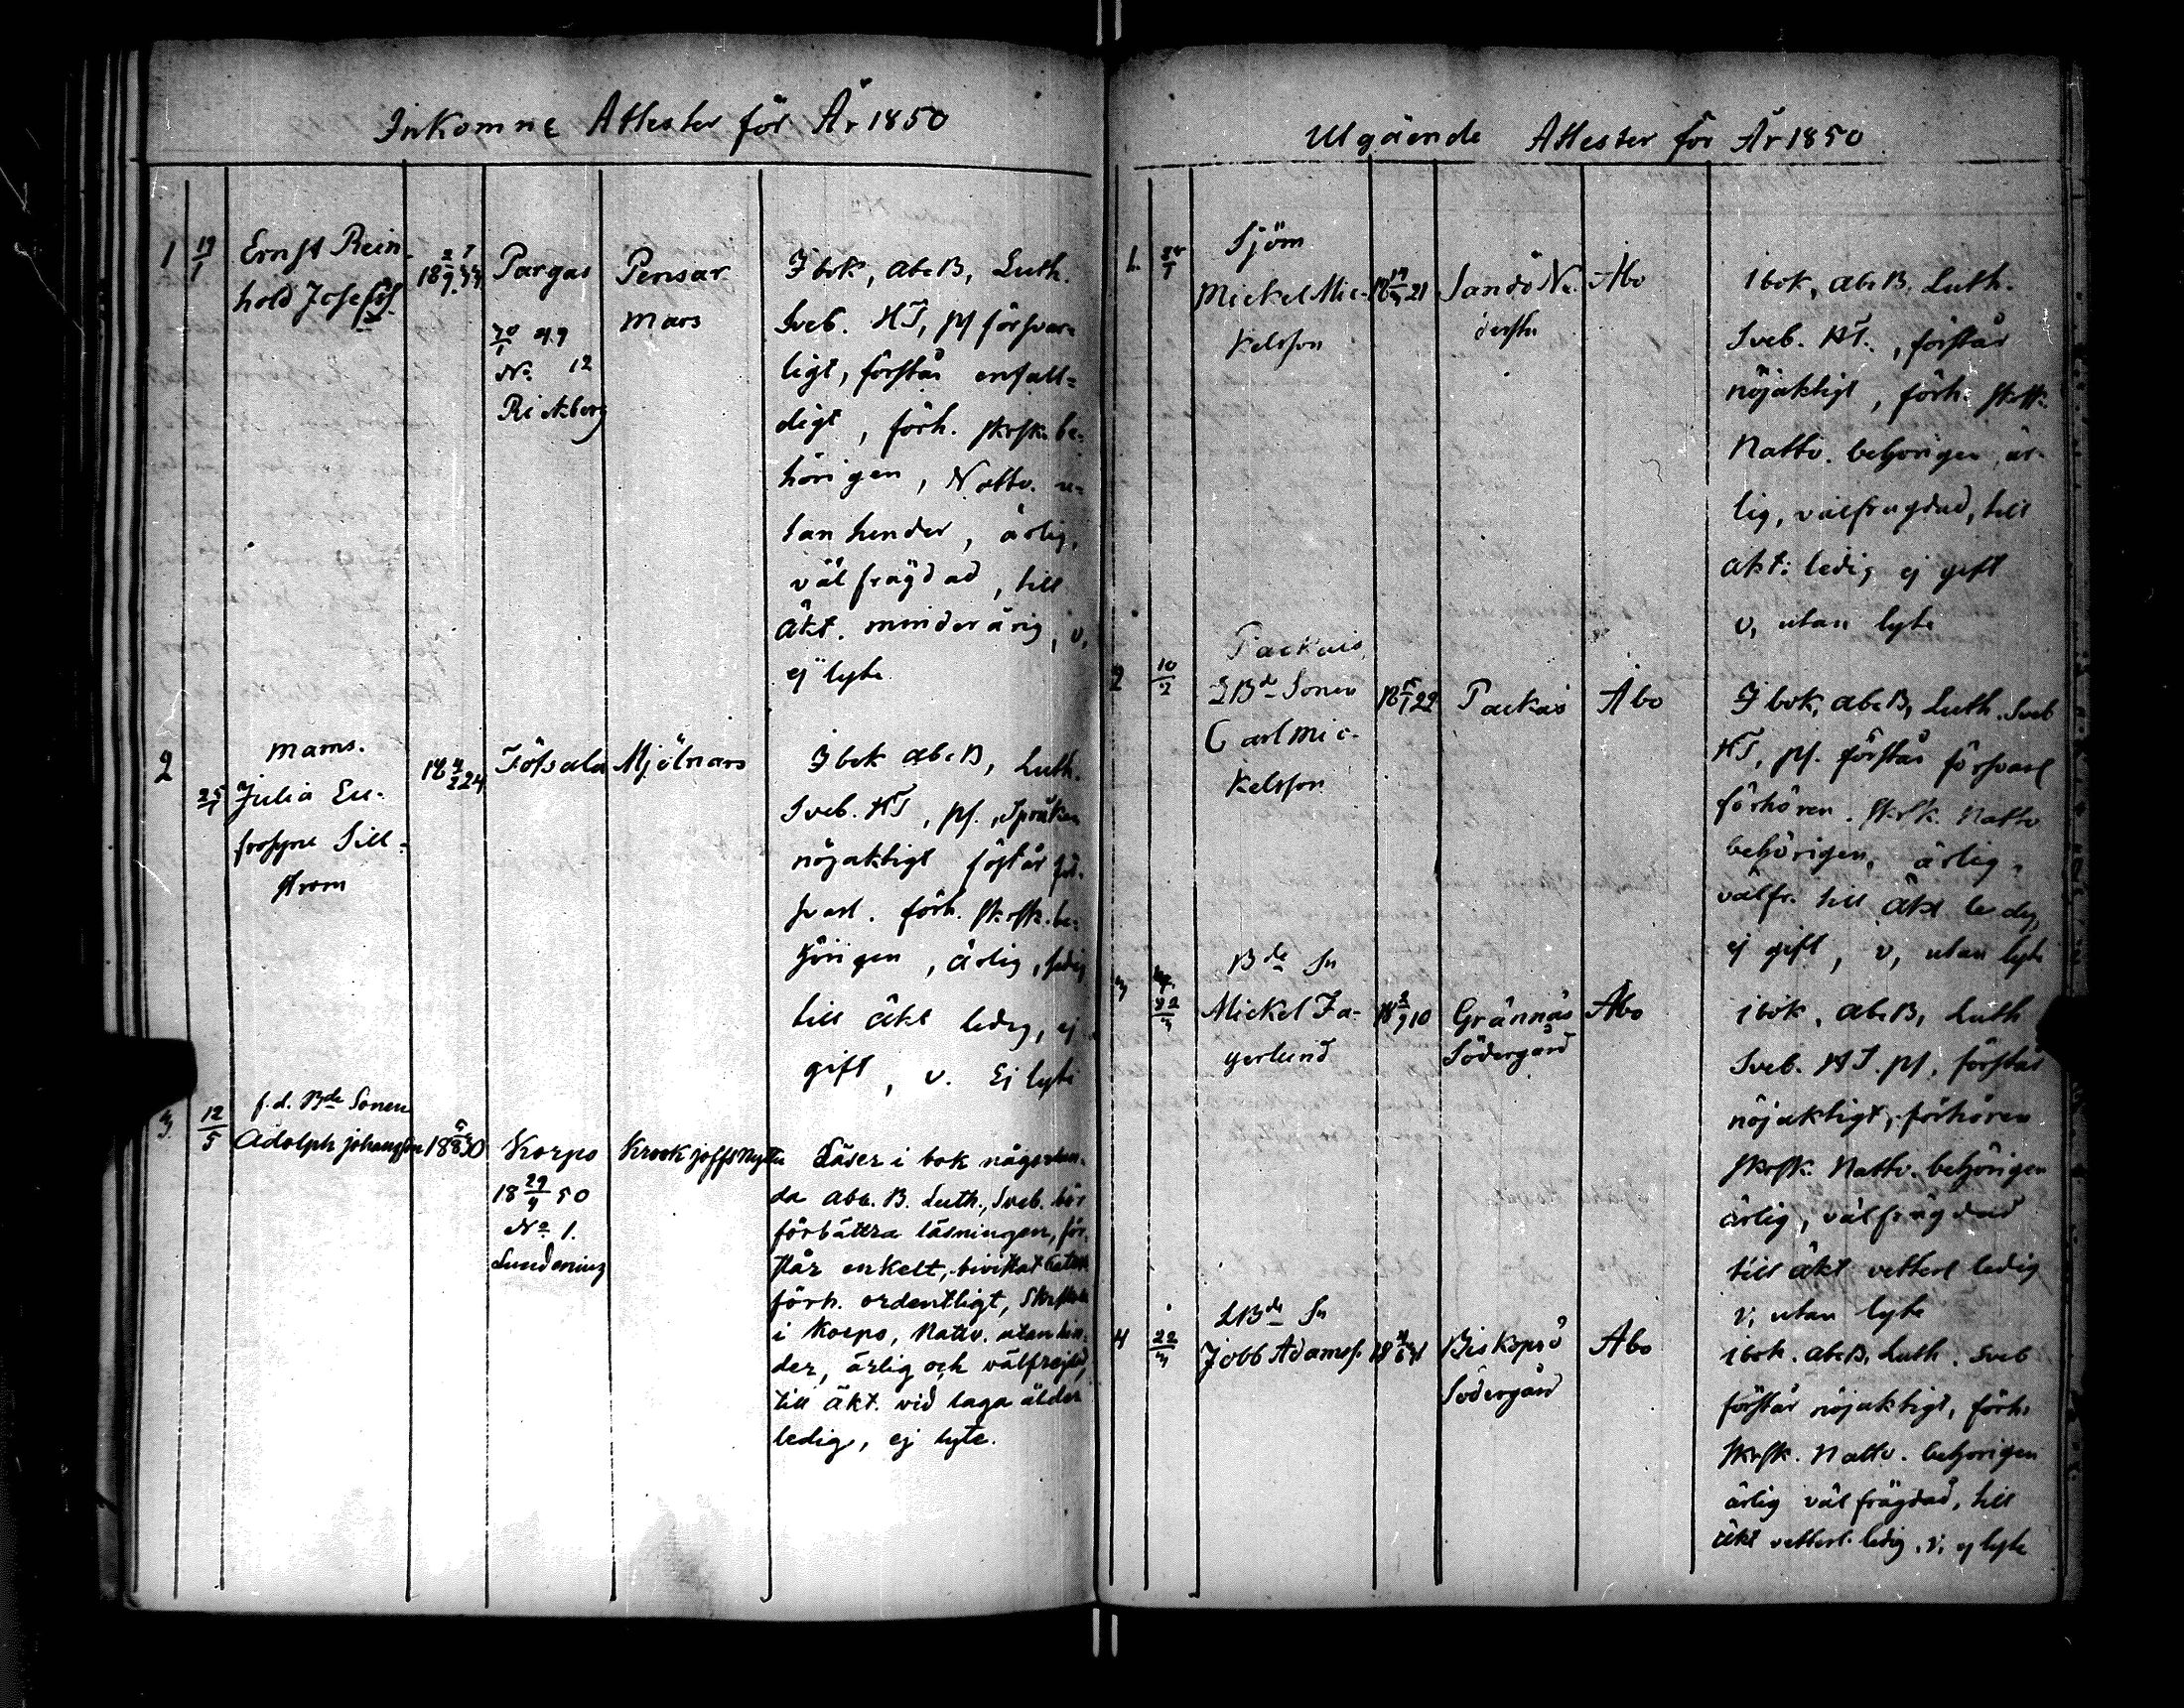 Inkomne Attester för År 1850
1 19/1 Ernst Rein-
hold Josefss.
Pargas
N: 12
Rickberg
Pensar
Mars
I bok, abcB, Luth.
Sveb. HT, pf försvar-
ligt, förstår enfall-
digt, förh. skrsk. be-
hörigen, Nattv. u-
tan hinder, ärlig,
välfrägdad, till
Äkt. minderårig, v,
ej lyte
2 25/1 Mams.
Julia Eu-
frosyne Sill-
strom
Töfsala
Mjölnars
I bok abcB, Luth.
Sveb. HT, pf., Språken
nöjaktigt förstår för-
svarl. förh. skrsk. be-
hörigen, ärlig,
till äkt ledig, ej
gift, v. Ej lyte
3. 12/5 f.d. Bde Sonen
Adolph Johansson
Korpo
18 29/4 50
No 1.
Krook
Läser i bok någorlun-
da abc. B. Luth., Sveb. bör
förbättra läsningen, för-
står enkelt, bivistat
förh. ordentligt,
i Korpo, Nattv. utan hin-
der, ärlig och välfrejdad,
till äkt. vid laga ålder
ledig, ej lyte.
Utgående Attester för År 1850
1. Sjöm
Mickel Mic-
kelsson
Sandö Ne-
derstu
Åbo
i bok, abcB, Luth.
Sveb. HT., förstår
nöjaktigt, förh. skrsk.
Nattv. behörigen, är-
lig, välfrägdad, till
äkt: ledig ej gift
v, utan lyte
2 10/2 Packais
LBde Sonen
Carl Mic-
kelsson
Packais
Åbo
I bok, abcB, Luth. Sveb
HT, pf. förstår försvarl
förhören. skrsk. Nattv
behörigen, ärlig,
välfr. till Äkt ledig,
ej gift, v, utan lyte
3 22/3 Bde Sn
Mickel Fa-
gerlund
Grännäs
Södergård
Åbo
i bok, abcB, Luth
Sveb. HT. pf, förstår
nöjaktigt, förhören
skrsk. Nattv. behörigen
ärlig, välfrägdad
till äkt vetterl ledig
v, utan lyte
4 22/3 LBde Sn
Jobb Adamss.
Biskopsö
Södergård
Åbo
i bok. abcB, Luth. Sveb
förstår nöjaktigt, förh.
skrsk. Nattv. behörigen
ärlig välfrägdad, till
äkt vetterl. ledig, v, ej lyte